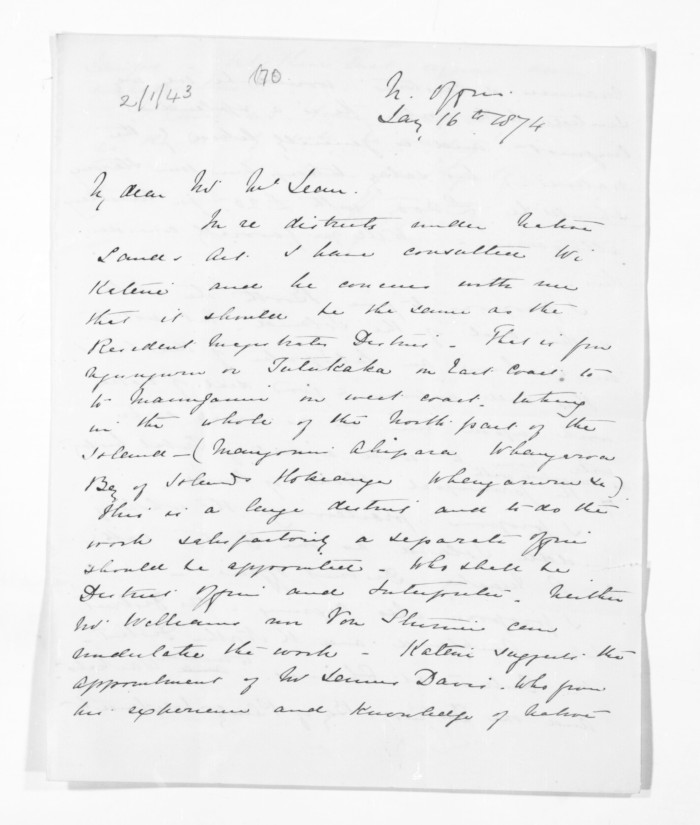 170.
2/1/43
N. Office
Jany 16th 1874
My dear Mr McLean.
In re districts under Native
Lands Act. I have consulted Wi
Katene and he concurs with me
that it should be the same as the
Resident Magistrates District - That is from
Ngunguru or Tutukaka on East Coast to
to Maunganui on west coast. taking
in the whole of the North part of the
Island - (Mangonui Ahipara Whangaroa
Bay of Islands Hokianga Whangaruru &c)
This is a large district and to do the
work satisfactorily a separate officer
should be appointed - Who shall be
District Officer and Interpreter. Neither
Mr Williams nor Von Sturmer can
undertake the work - Katene suggests the
appointment of Mr Davis. Who from
his experience and knowledge of Native